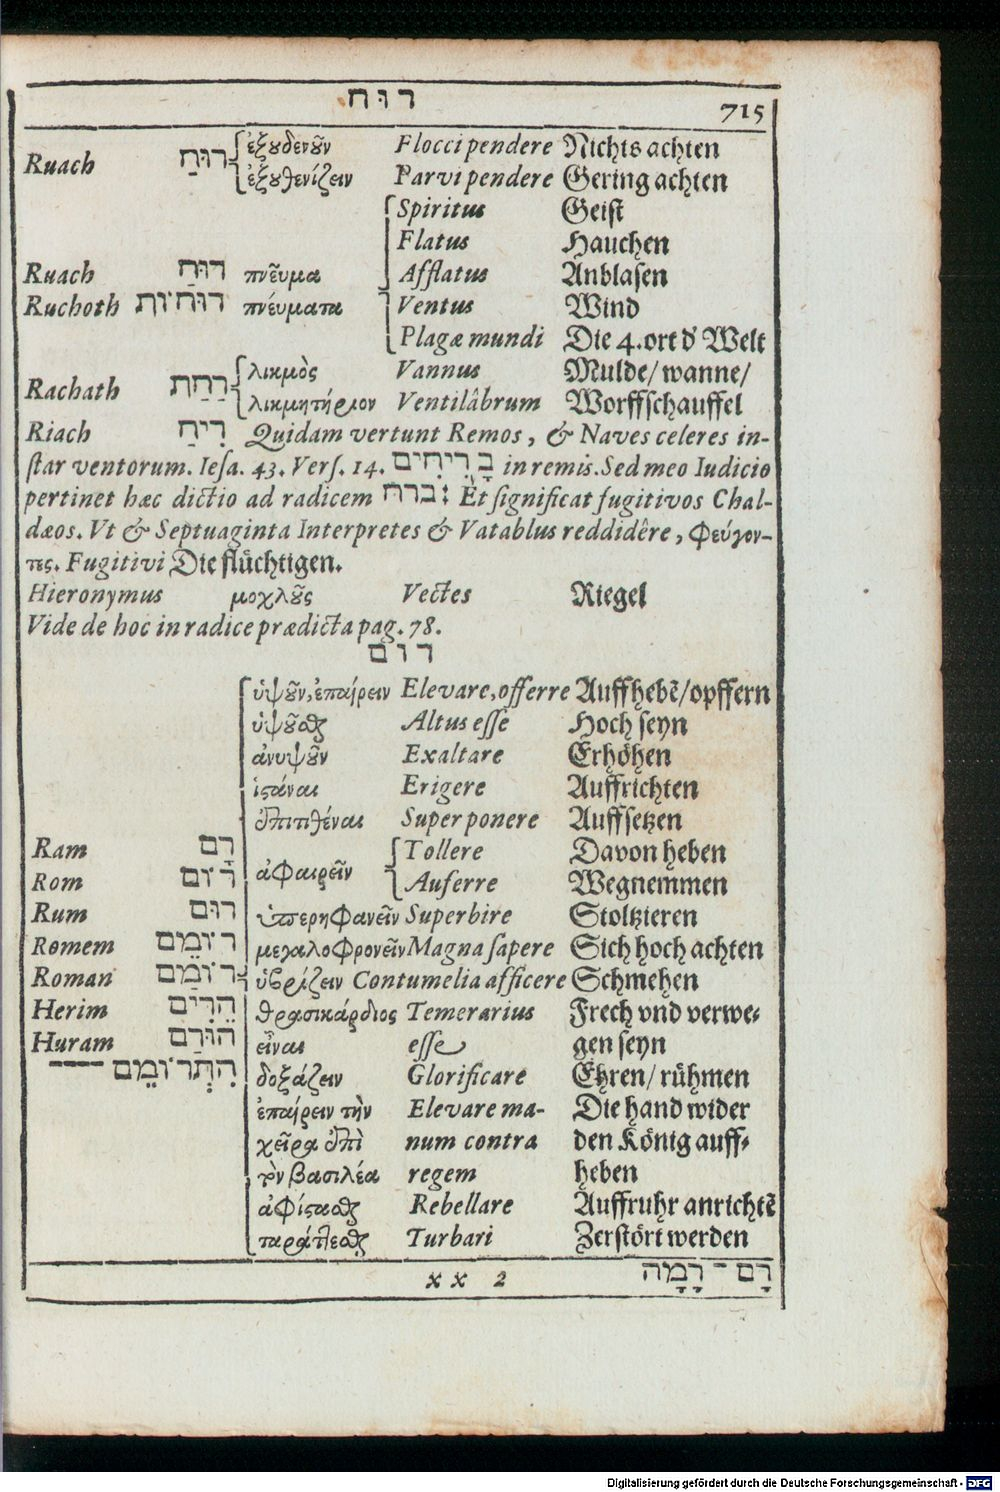 רוח
715
Ruach רוּחַ ἐξουδενοῦν Floccipendere Nichts achten
ἐξουθενίζειν Parvipendere Gering achten
Spiritus Geist
Flatus Hauchen
Ruach רוּחַ πνεῦμα Afflatus Anblasen
Ruchoth רוּחוֹת πνεύματα Ventus Wind
Plagæ mundi Die 4. ort d' Welt
Rachath רַחַת λικμὸς Vannus Mulde/ wanne/
λικμητήριον Ventilâbrum Worffschauffel
Riach רִיחַ Quidam vertunt Remos, & Naves celeres in-
star ventorum. Iesa. 43. Vers. 14. בָּרִיחִים in remis. Sed meo Iudicio
pertinet hæc dictio ad radicem ברח: Et significat fugitivos Chal-
dæos. Vt & Septuaginta Interpretes & Vatablus reddidêre, φεύγον-
τες. Fugitivi Die flüchtigen.
Hieronymus μοχλοῦς Vectes Riegel
Vide de hoc in radice prædicta pag. 78.
רום
ὑψοῦν, ἐπαίρειν Elevare, offerre Auffhebẽ/opffern
ὑψοῦσθαι Altus esse Hoch seyn
ἀνυψοῦν Exaltare Erhöhen
ἱστάναι Erigere Auffrichten
ἐπιτιθέναι Superponere Auffsetzen
Ram רָם Tollere Davon heben
ἀφαιρεῖν
Rom רוֹם Auferre Wegnemmen
Rum רוּם ὑπερηφανεῖν Superbire Stoltzieren
Romem רוֹמֵם μεγαλοφρονεῖν Magna sapere Sich hoch achten
Roman רוֹמַם ὑβρίζειν Contumelia afficere Schmehen
Herim הֵרִים θρασικάρδιος Temerarius Frech vnd verwe-
Huram הוּרַם εἶναι esse gen seyn
הִתְרוֹמֵם — δοξάζειν Glorificare Ehren/ rühmen
ἐπαίρειν τὴν Elevare ma- Die hand wider
χεῖρα ἐπὶ num contra den König auff-
τὸν βασιλέα regem heben
ἀφίστασθαι Rebellare Auffruhr anrichtẽ
ταράττεσθαι Turbari Zerstört werden
xx 2 רָם - רָמָה
Digitalisierung gefördert durch die Deutsche Forschungsgemeinschaft - DFG